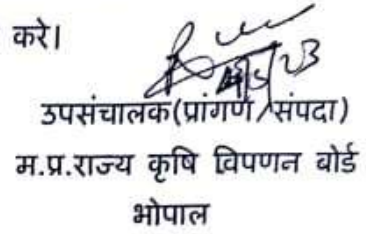 करे।
उपसंचालक(प्रांगण/संपदा)
म.प्र.राज्य कृषि विपणन बोर्ड
भोपाल